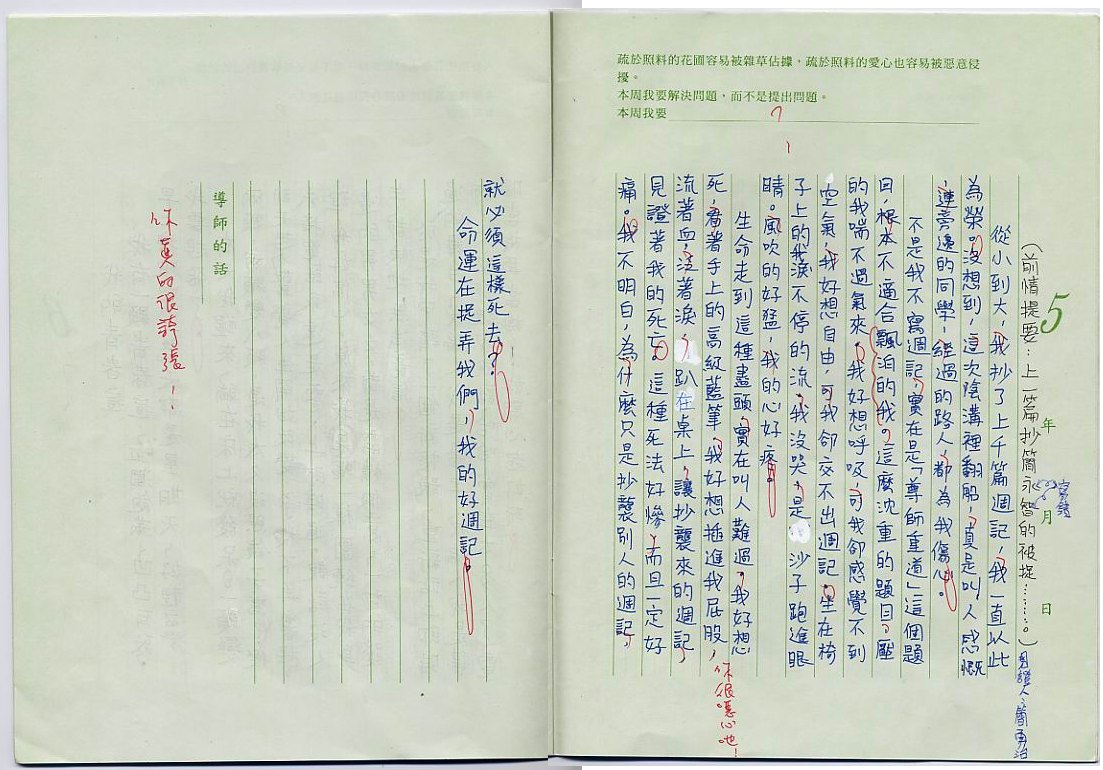 疏於照料的花圃容易被雜草佔據，疏於照料的愛心也容易被惡意侵
擾。
本周我要解決問題，而不是提出問題。
本周我要
?
5
年 月 日
寫錯
（前情提要：上一篇抄簡永智的被捉……。）見證人：簡勇治
從小到大，我抄了上千篇週記，我一直以此
為榮。沒想到，這次陰溝裡翻船，真是叫人感慨
，連旁邊的同學，經過的路人，都為我傷心。
不是我不寫週記，實在是「尊師重道」這個題
目，根本不適合飄泊的我。這麼沈重的題目，壓
的我喘不過氣來。我好想呼吸，可我卻感覺不到
空氣，我好想自由，可我卻交不出週記。坐在椅
子上的我淚不停的流，我沒哭，是沙子跑進眼
睛。風吹的好猛，我的心好疼。
生命走到這種盡頭，實在叫人難過。我好想
死，看著手上的高級藍筆，我好想插進我屁股，
你很噁心吔！
流著血，泣著淚，趴在桌上，讓抄襲來的週記，
見證著我的死亡。這種死法好慘，而且一定好
痛。我不明白，為什麼只是抄襲別人的週記，
就必須這樣死去？
命運在捉弄我們，我的好週記。
導師的話
你真的很誇張！